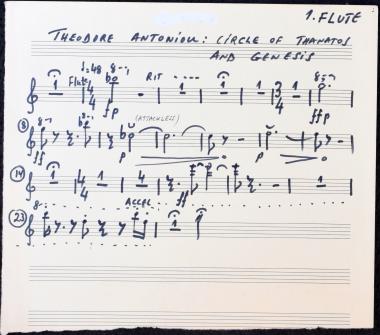 1. FLUTE
THEODORE ANTONIOU: CIRCLE OF THANATOS
AND GENESIS
♩=48
8
Flute
RIT
8
1 4 4 1 1 1 3 4 1
ffp
ffp
8
8
8
(ATTACKLESS)
ff
p
p
14
1 4 4 1 4 1
ACCEL
ff
23
8
1